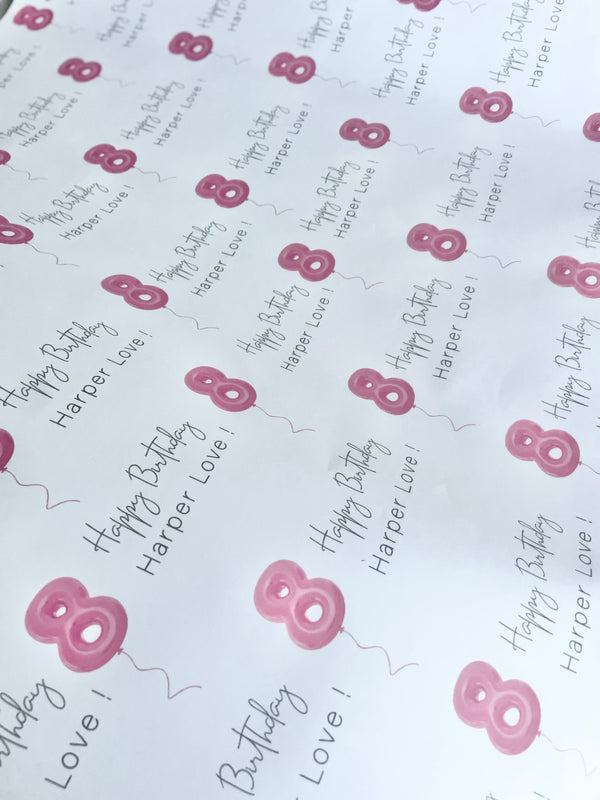 Happy Birthday
Harper Love !
8
Happy Birthday
Harper Love !
8
Happy Birthday
Harper Love !
8
Happy Birthday
Harper Love !
8
Happy Birthday
Harper Love !
8
Happy Birthday
Harper Love !
8
Happy Birthday
Harper Love !
8
Happy Birthday
Harper Love !
8
Happy Birthday
Harper Love !
8
Happy Birthday
Harper Love !
8
Happy Birthday
Harper Love !
8
Happy Birthday
Harper Love !
8
Happy Birthday
Harper Love !
8
Birthday
Love !
8
Birthday
Love !
8